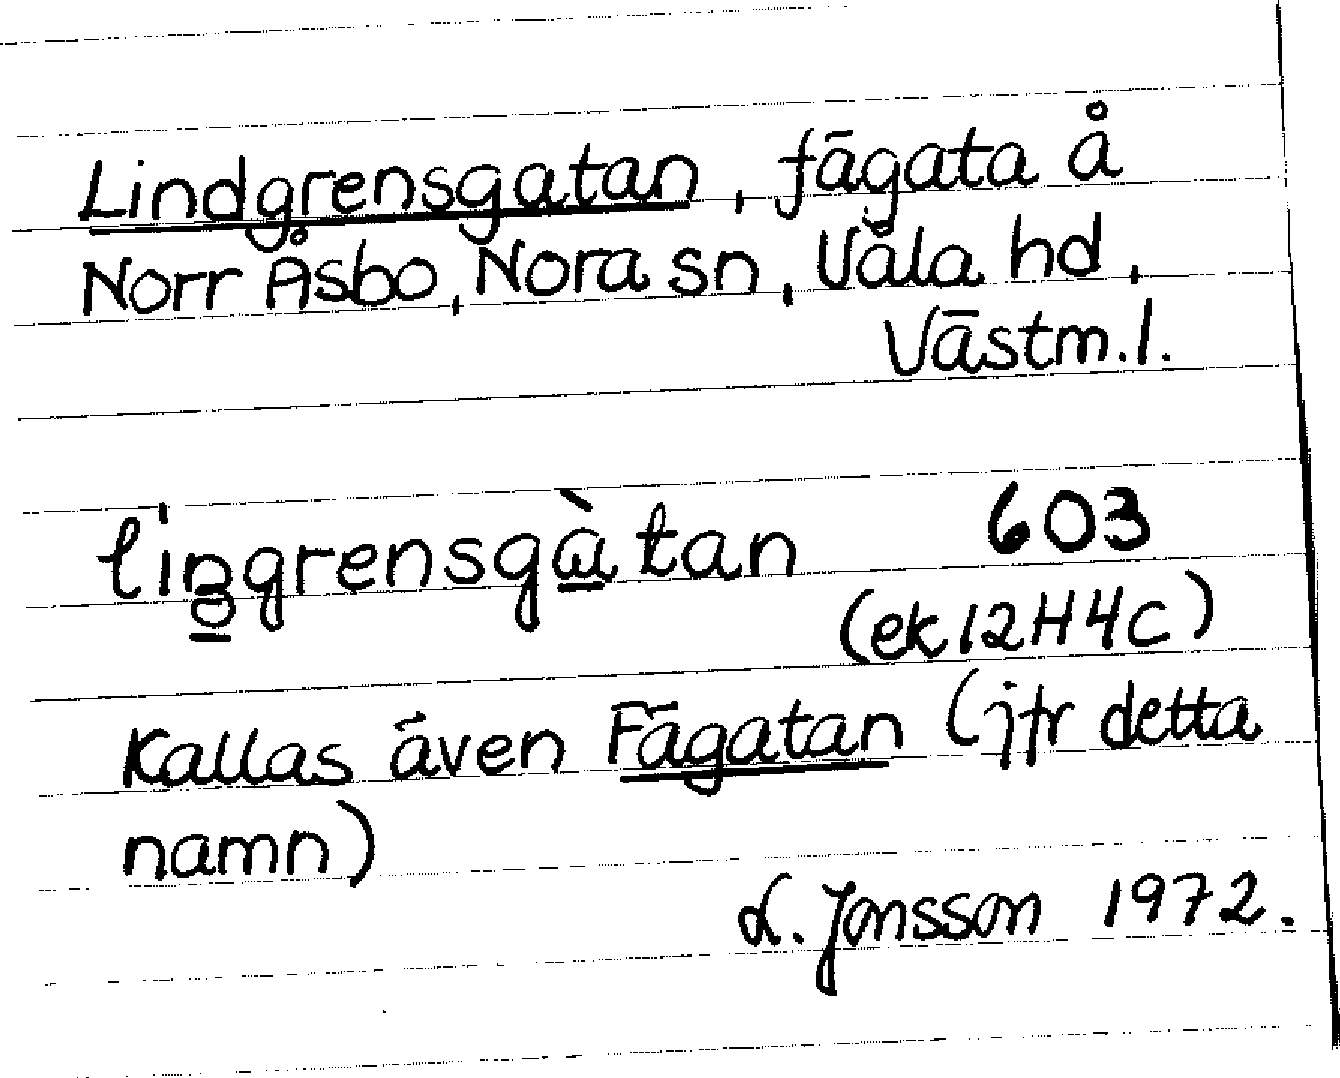 Lindgrensgatan, fägata å
Norr Åsbo, Nora sn, Våla hd,
Västm.l.
603
(ek 12H4c)
Kallas även Fägatan (jfr detta
namn)
L. Jonsson 1972.